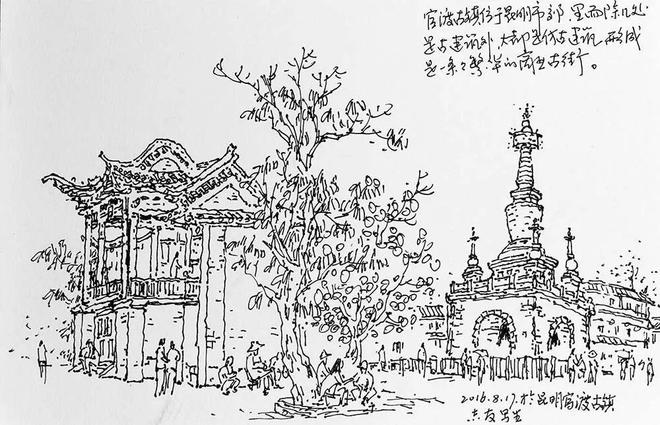 官渡古镇位于昆明市郊,里面除几处
是古建筑外,大都是仿古建筑,形成
是一条々繁华的商业古街。
2016.8.17.于昆明官渡古镇